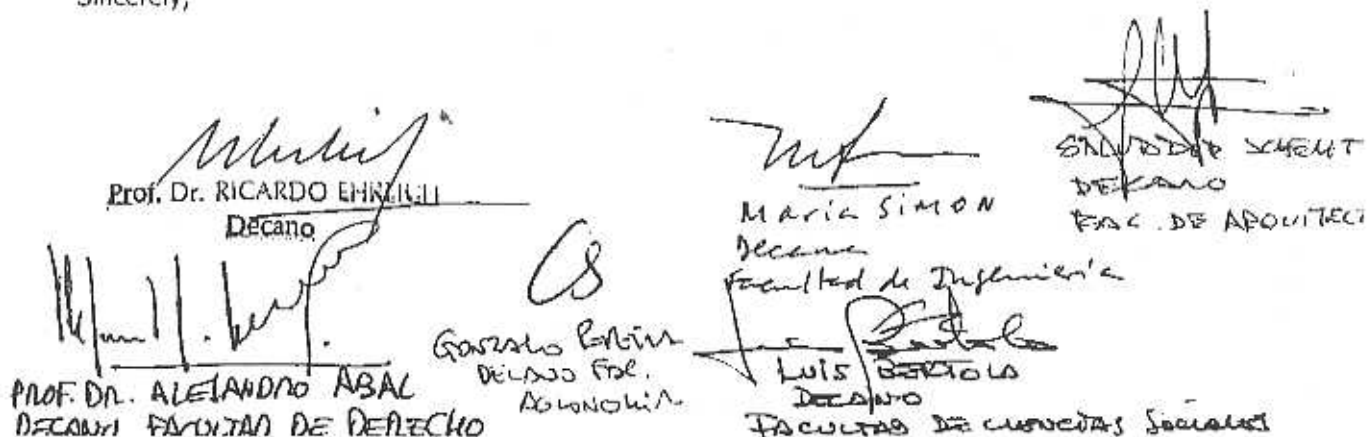 Sincerely,
Prof. Dr. RICARDO EHRLICH
Decano
PROF. DR. ALEJANDRO ABAL
DECANO FACULTAD DE DERECHO
GONZALO PEREIRA
DECANO FAC.
AGRONOMIA
María SIMON
Decana
Facultad de Ingeniería
LUIS BERTOLA
DECANO
FACULTAD DE CIENCIAS SOCIALES
SALVADOR SCHELOT
DECANO
FAC. DE ARQUITECT